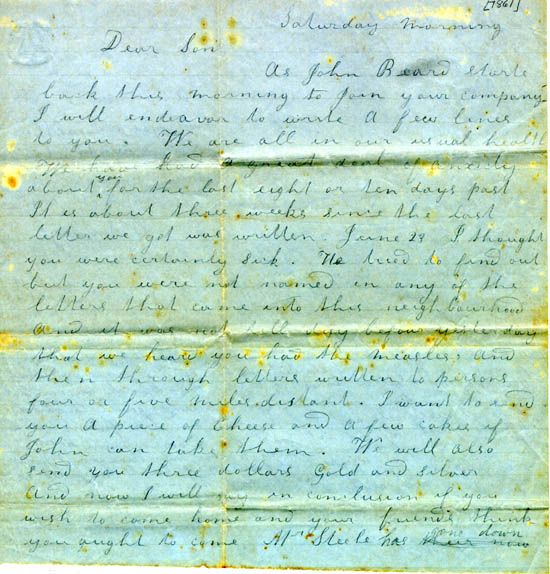 [1861]
Saturday morning
Dear Son
As John Beard starts
back this morning to join your company
I will endeavor to write A few lines
to you. We are all in our usual health
We have had a great deal of anxiety
about you for the last eight or ten days past
It is about three weeks since the last
letter we got was written. June 29 I thought
you were certainly sick. We tried to find out
but you were not named in any of the
letters that came into this neighbourhood
And it was not till day before yesterday
that we heard you had the measles and
then through letters written to persons
four or five miles distant. I want to send
you A piece of Cheese and A few cakes if
John can take them. We will also
send you three dollars Gold and silver
And now I will say in conclusion if you
wish to come home and your friends think
you ought to come Mr Steele has gone down
there now